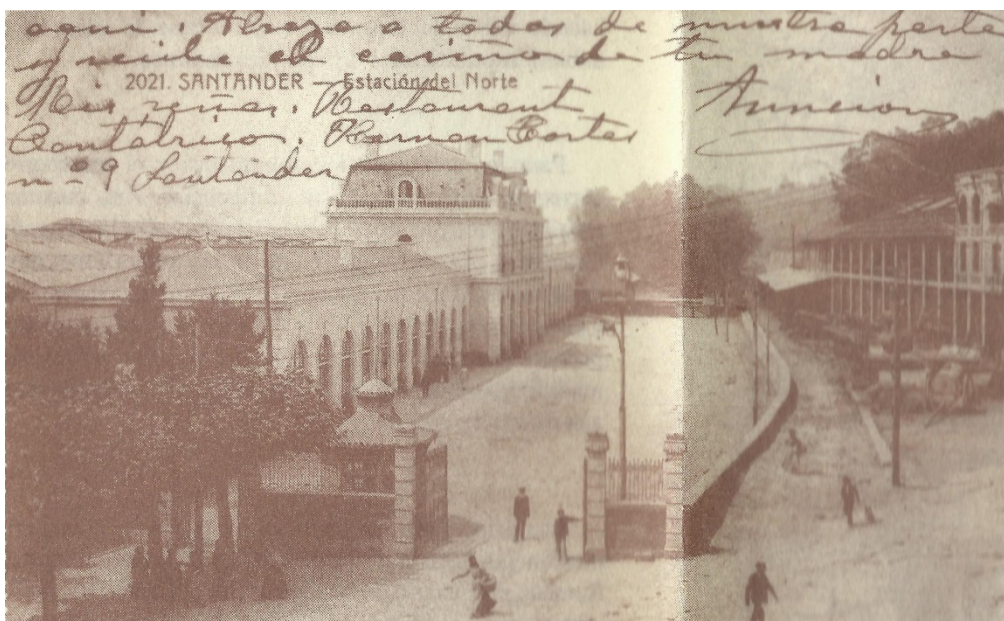 aqui. Abraza a todos de nuestra parte
y recibe el cariño de tu madre
2021. SANTANDER — Estación del Norte
Mis señas. Restaurant Asuncion
Cantabrico. Hernan Cortes
nº 9 Santander